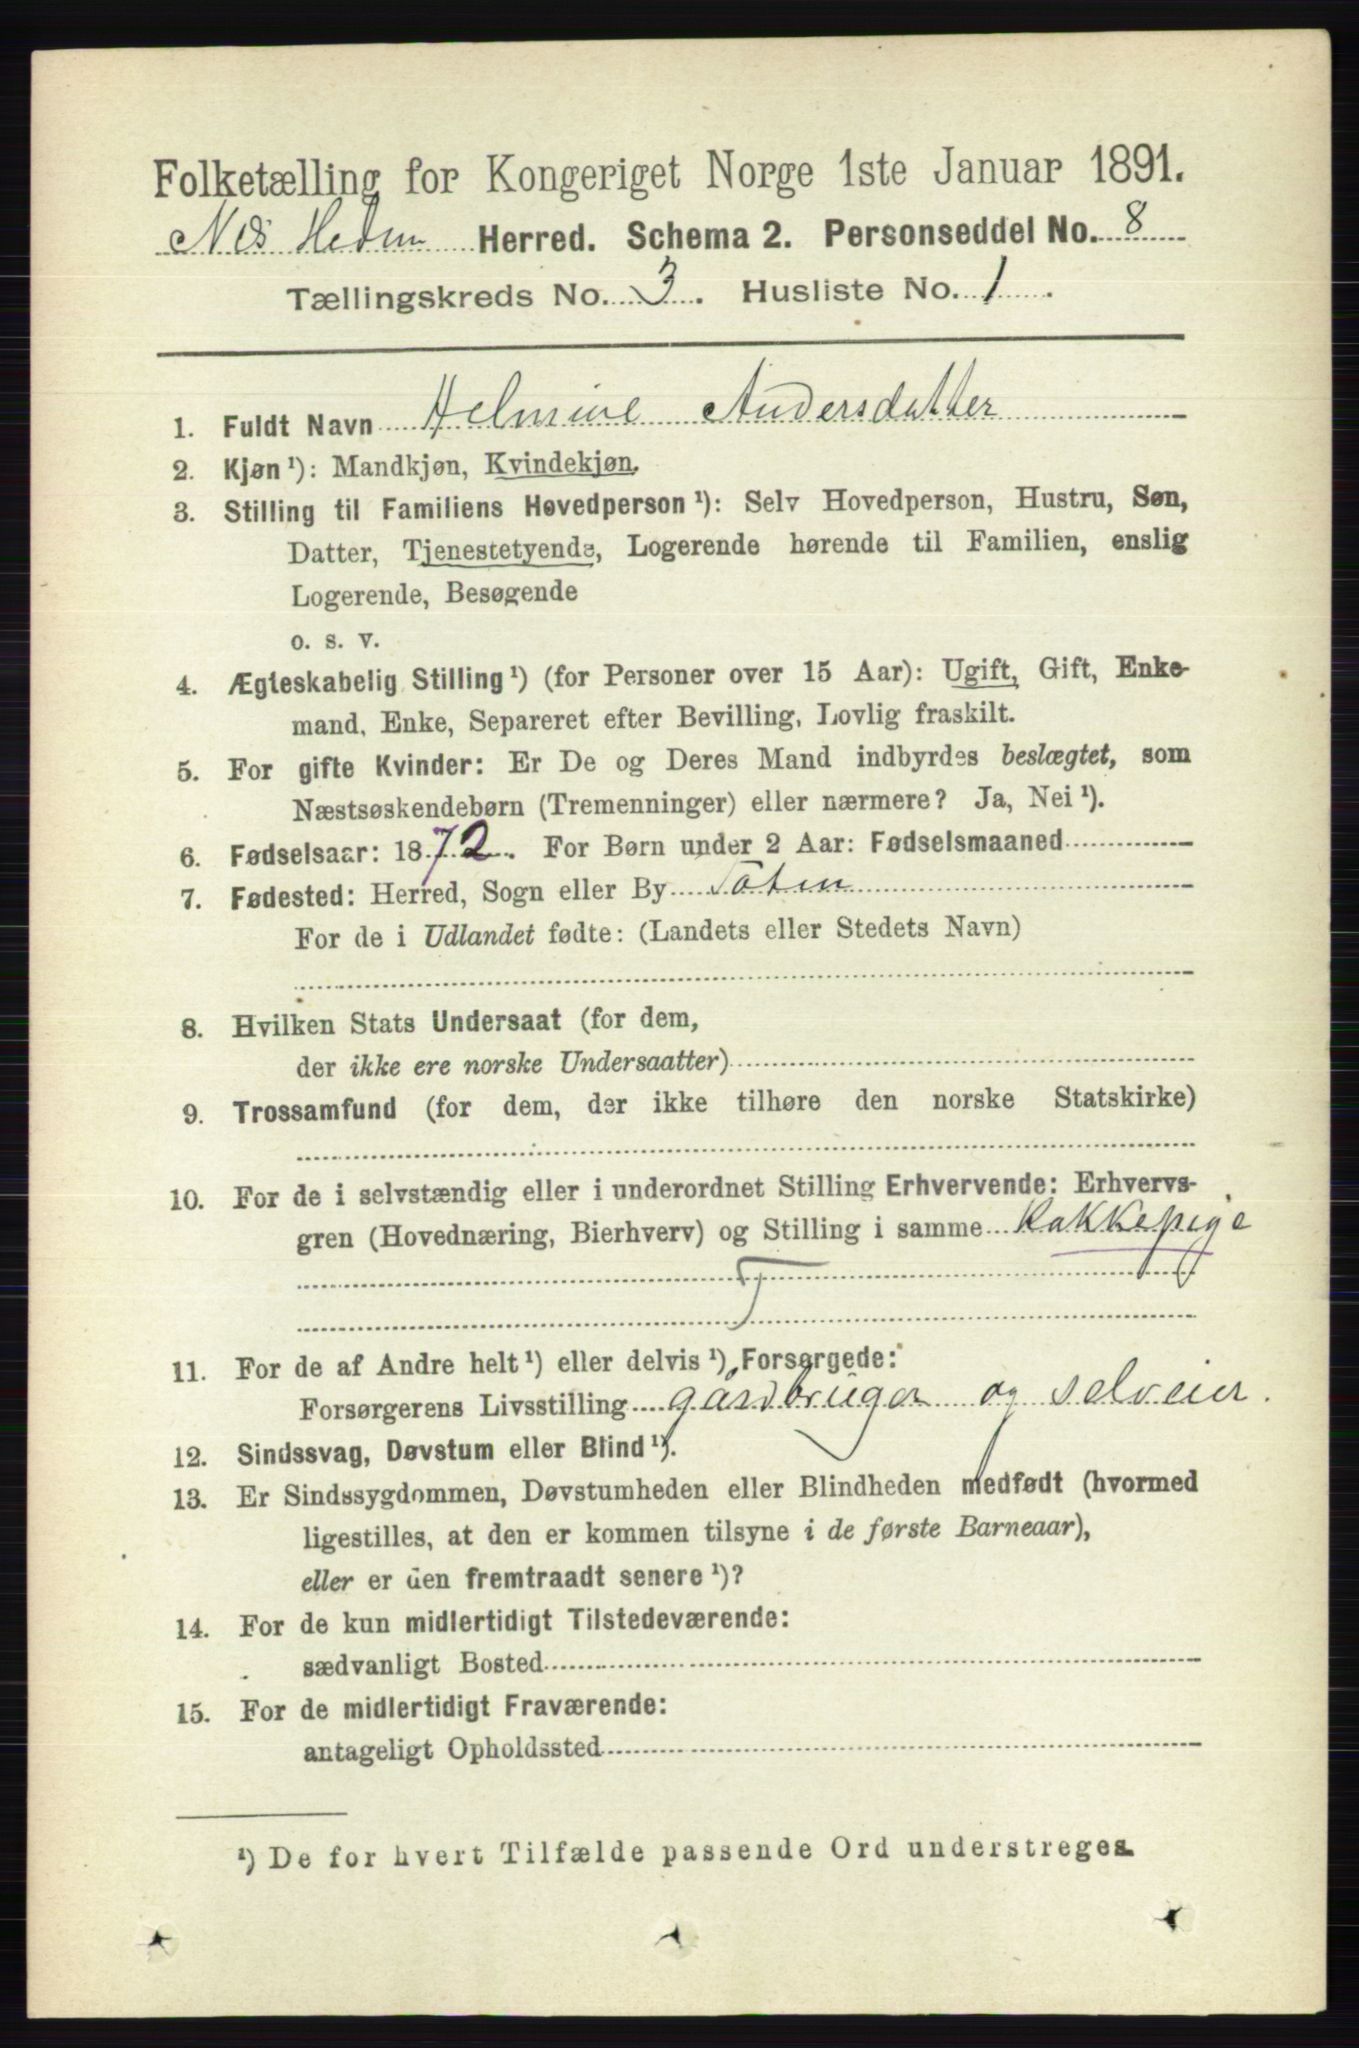 Folketælling for Kongeriget Norge 1ste Januar 1891.
Nes Hedm Herred. Schema 2. Personseddel No. 8
Tællingskreds No. 3. Husliste No. 1.
1. Fuldt Navn Helmine Andersdatter
2. Kjøn ¹): Mandkjøn, Kvindekjøn.
3. Stilling til Familiens Hovedperson ¹): Selv Hovedperson, Hustru, Søn,
Datter, Tjenestetyende, Logerende hørende til Familien, enslig
Logerende, Besøgende
o. s. v.
4. Ægteskabelig Stilling ¹) (for Personer over 15 Aar): Ugift, Gift, Enke-
mand, Enke, Separeret efter Bevilling, Lovlig fraskilt.
5. For gifte Kvinder: Er De og Deres Mand indbyrdes beslægtet, som
Næstsøskendebørn (Tremenninger) eller nærmere? Ja, Nei ¹).
6. Fødselsaar: 1872. For Børn under 2 Aar: Fødselsmaaned
7. Fødested: Herred, Sogn eller By Toten
For de i Udlandet fødte: (Landets eller Stedets Navn)
8. Hvilken Stats Undersaat (for dem,
der ikke ere norske Undersaatter)
9. Trossamfund (for dem, der ikke tilhøre den norske Statskirke)
10. For de i selvstændig eller i underordnet Stilling Erhvervende: Erhvervs-
gren (Hovednæring, Bierhverv) og Stilling i samme Kokkepige
T
11. For de af Andre helt ¹) eller delvis ¹) Forsørgede:
Forsørgerens Livsstilling gårdbruger og selveier.
12. Sindssvag, Døvstum eller Blind ¹).
13. Er Sindssygdommen, Døvstumheden eller Blindheden medfødt (hvormed
ligestilles, at den er kommen tilsyne i de første Barneaar),
eller er den fremtraadt senere ¹)?
14. For de kun midlertidigt Tilstedeværende:
sædvanligt Bosted
15. For de midlertidigt Fraværende:
antageligt Opholdssted
¹) De for hvert Tilfælde passende Ord understreges.